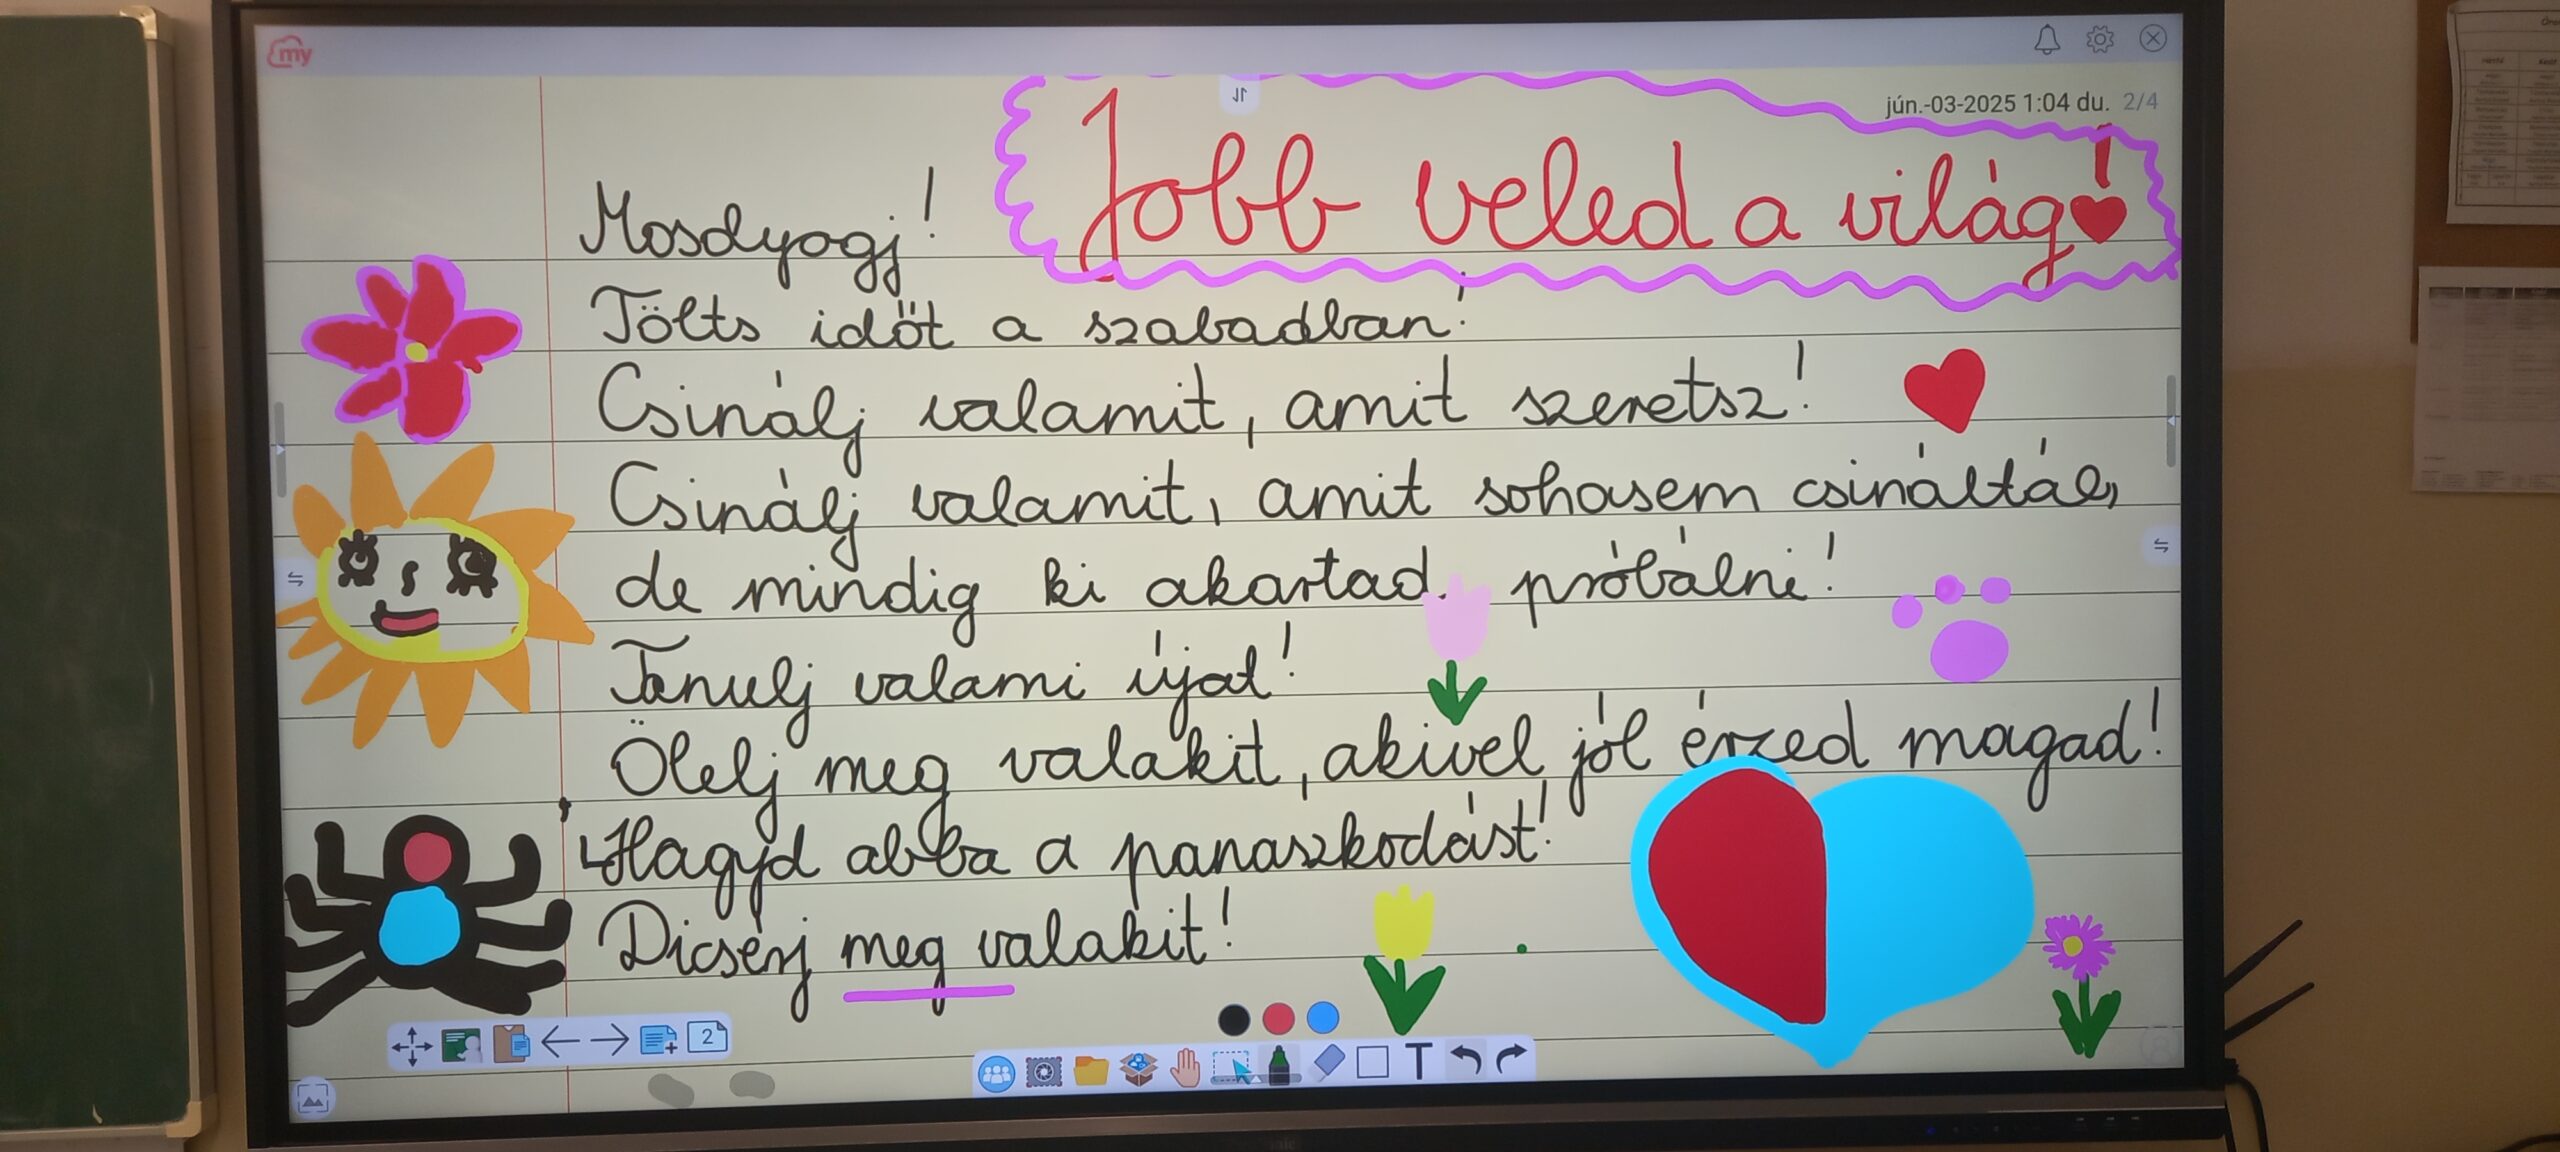 my
jún.-03-2025 1:04 du. 2/4
Jobb veled a világ!
Mosdyogj!
Tölts időt a szabadban!
Csinálj valamit, amit szeretsz!
Csinálj valamit, amit sohasem csináltál,
de mindig ki akartad próbálni!
Tanulj valami újat!
Ölelj meg valakit, akivel jól érzed magad!
Hagyd abba a panaszkodást!
Dicsérj meg valakit!
2
T